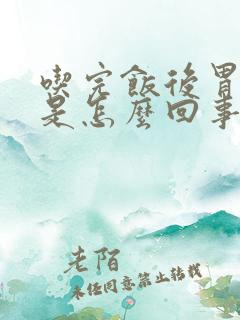 喫完飯後胃
是怎麼回事
老陌
未经同意禁止转载